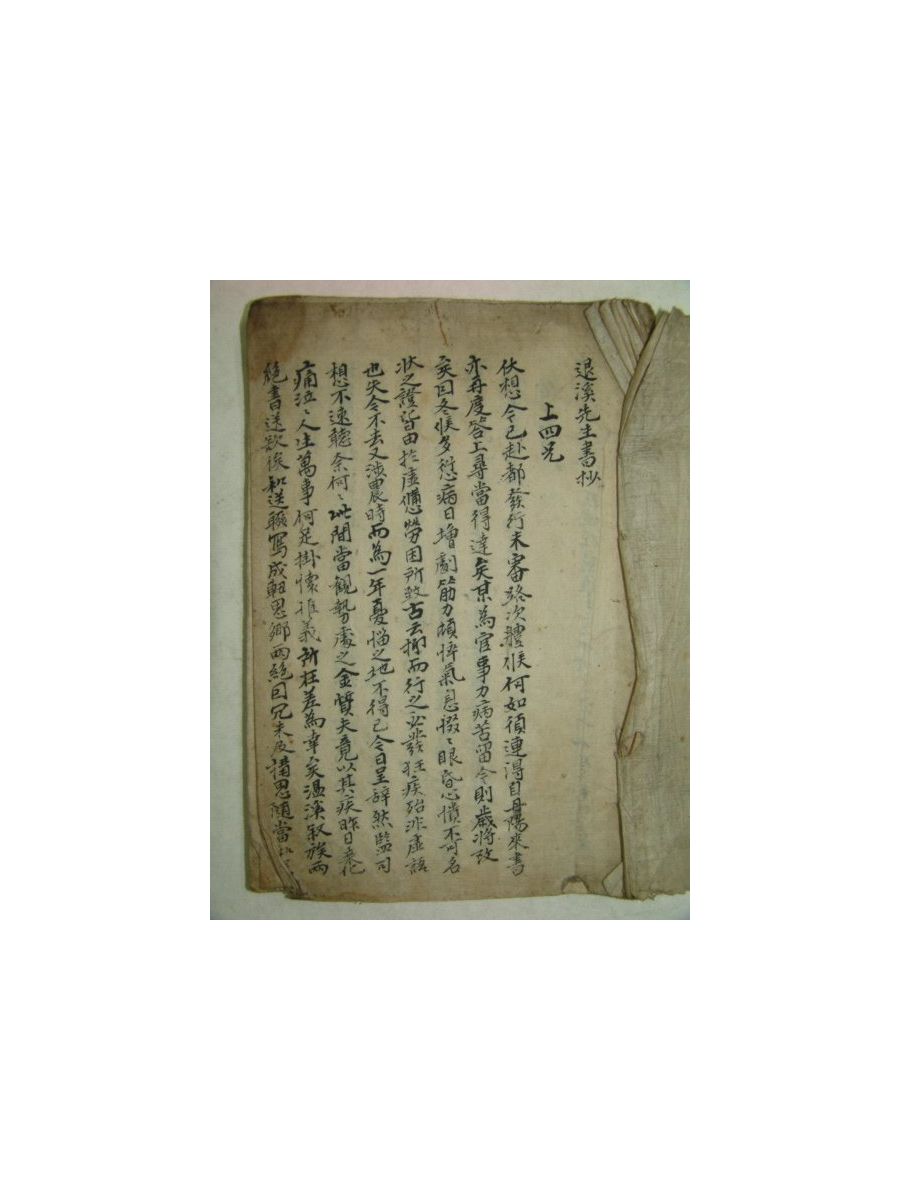 退溪先生書抄
上四兄
伏想令已赴都發行未審路次體候何如須連得自丹陽來書
亦再度答上尋當得達矣某為官事力病苦留今則歲將改
矣因冬候多愆病日增劇筋力頓悴氣息惙〻眼昏心憒不可名
狀之證皆由於虛憊勞困所致古云抑而行之必發狂疾殆非虛語
也失今不去又涉農時而為一年憂惱之地不得已今日呈辭然監司
想不速聽奈何〻此間當觀勢處之金質夫竟以其疾昨日乘化
痛泣〻人生萬事何足掛懷推義所在差為幸矣溫溪叙族兩
絕書送歎後和送 寫成 思鄉兩絕回兄未及構思隨當